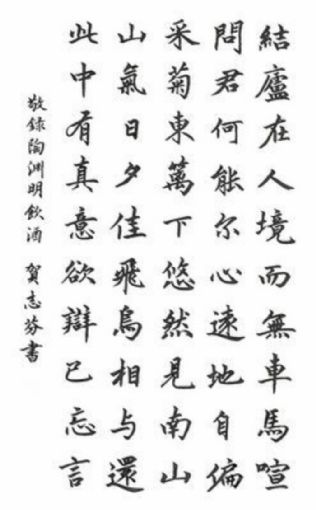 結廬在人境而無車馬喧
問君何能尔心遠地自偏
采菊東篱下悠然見南山
山氣日夕佳飛鳥相与還
此中有真意欲辯已忘言
敬録陶渊明飲酒 賀志芬書